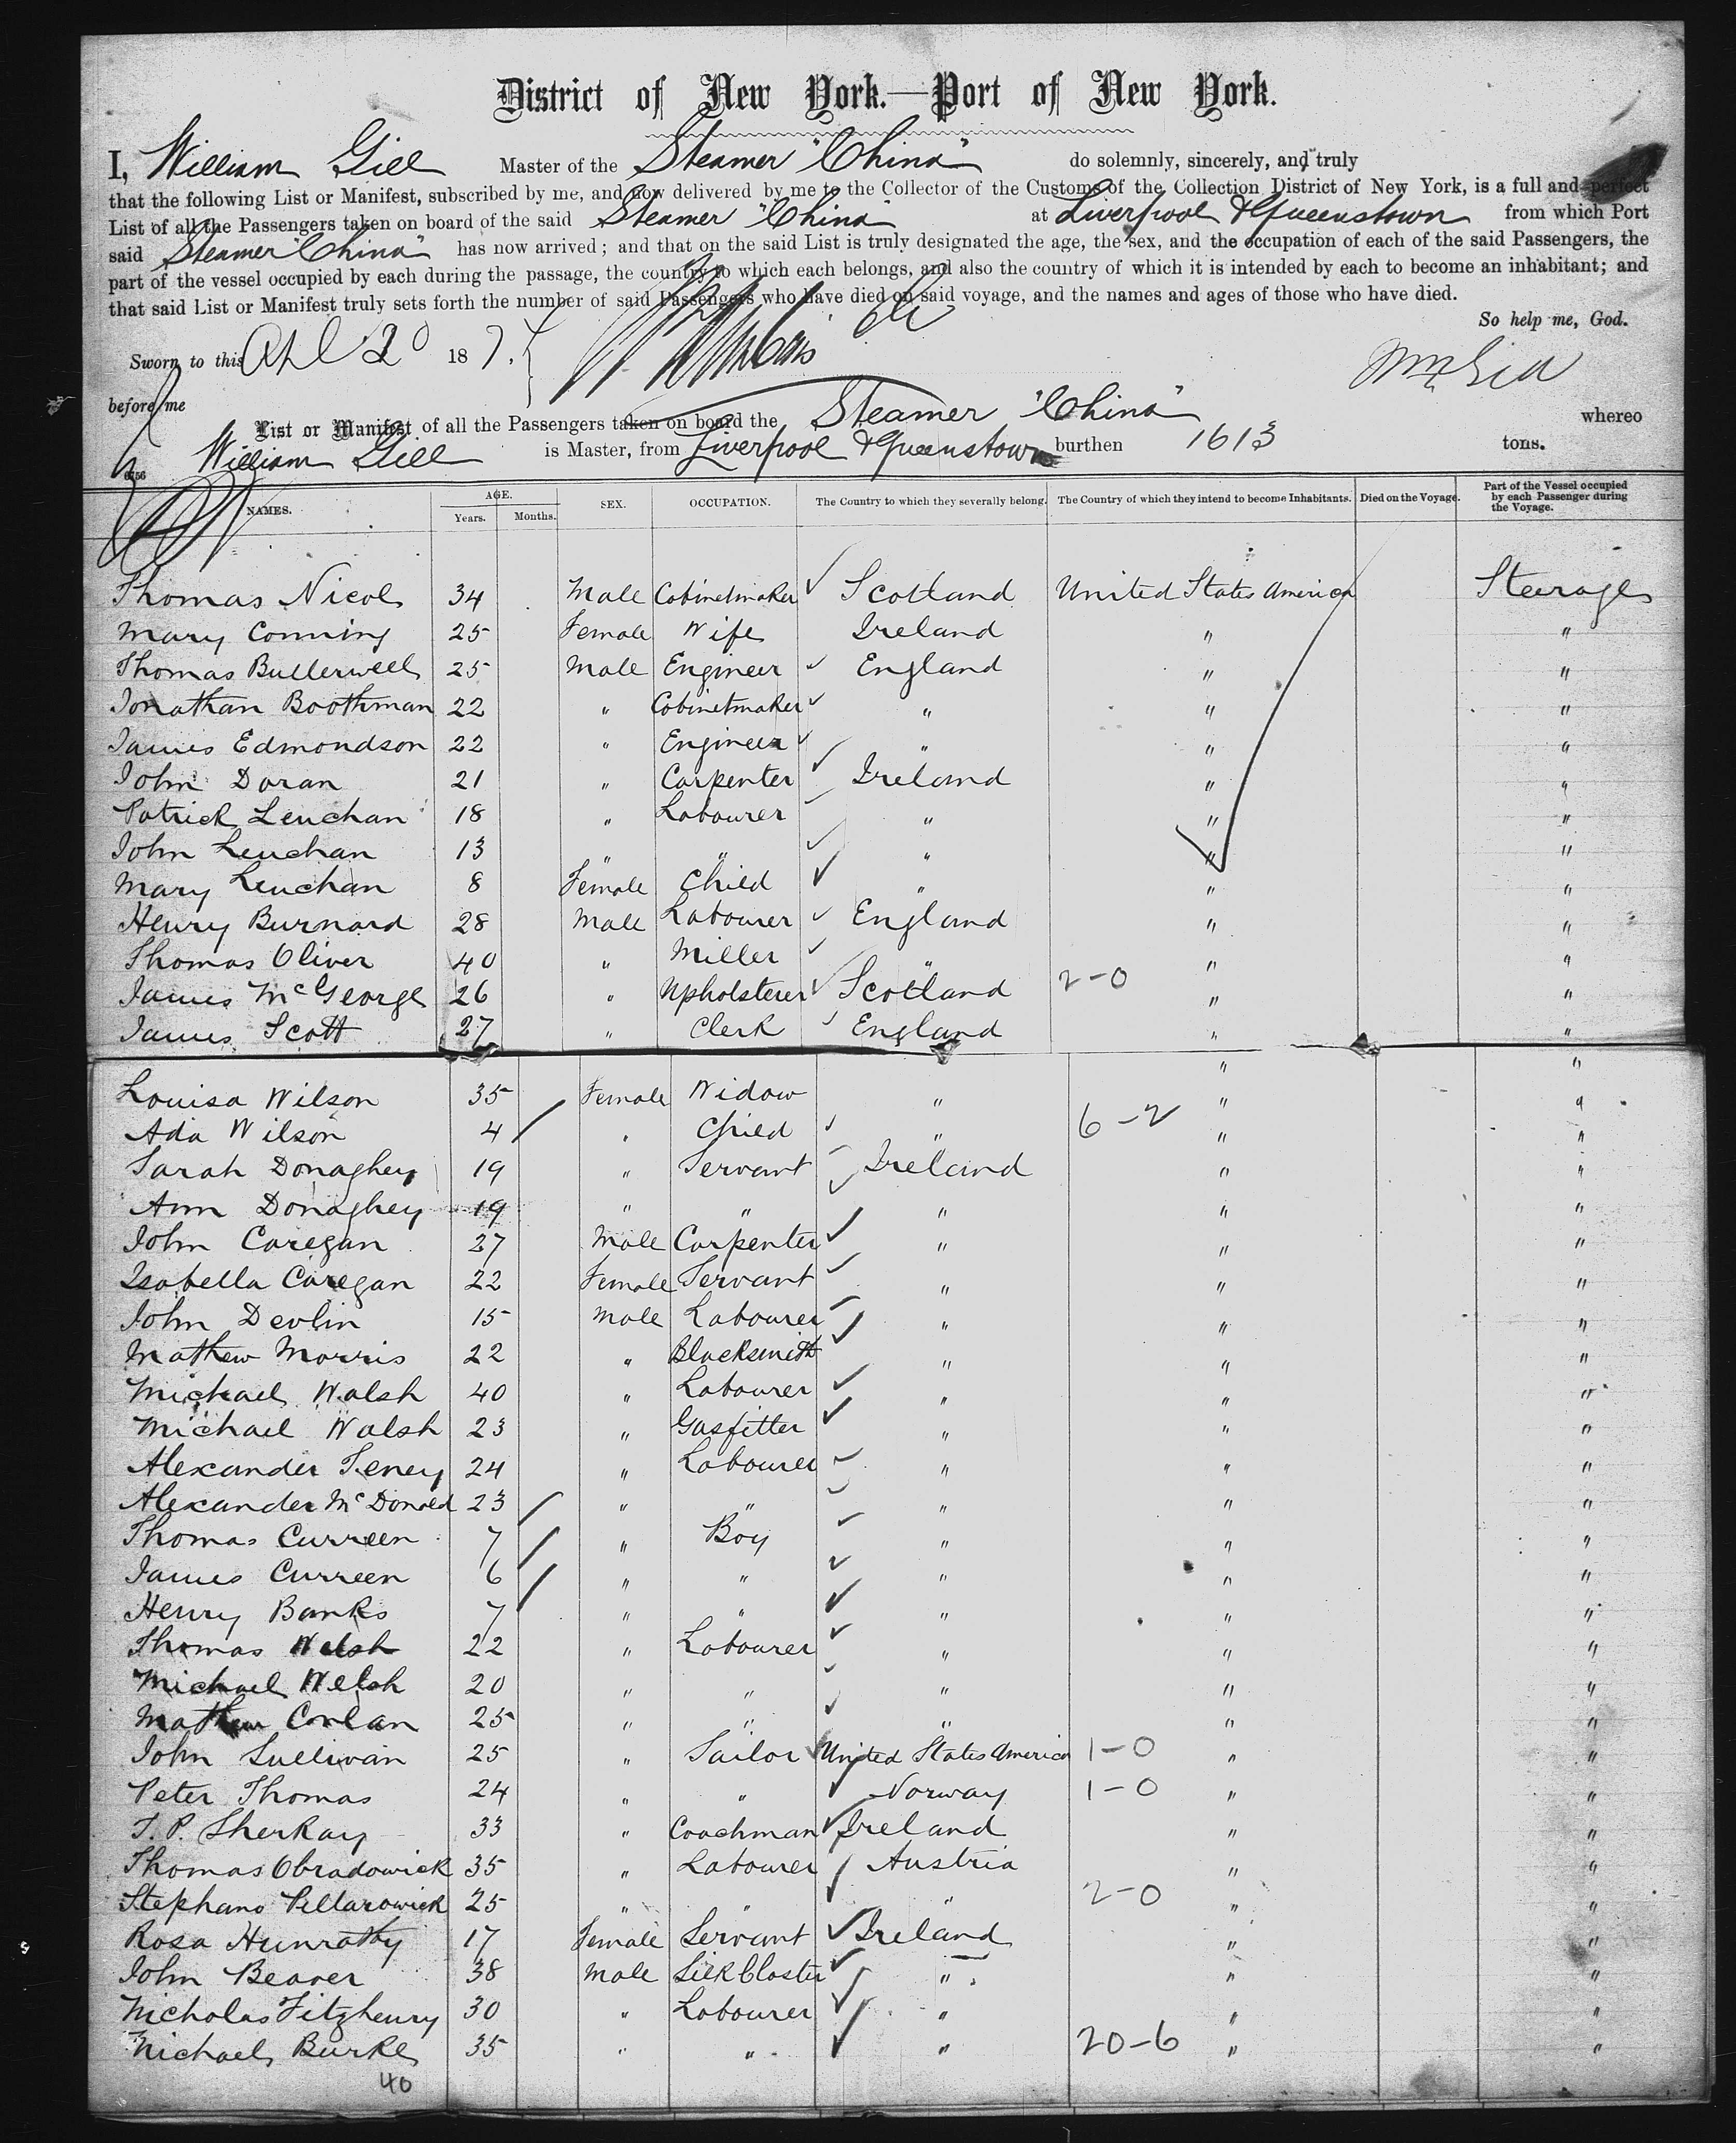 District of New York.—Port of New York.
I, William Gill Master of the Steamer "China" do solemnly, sincerely, and truly
that the following List or Manifest, subscribed by me, and now delivered by me to the Collector of the Customs of the Collection District of New York, is a full and perfect
List of all the Passengers taken on board of the said Steamer "China" at Liverpool & Queenstown from which Port
said Steamer "China" has now arrived; and that on the said List is truly designated the age, the sex, and the occupation of each of the said Passengers, the
part of the vessel occupied by each during the passage, the country to which each belongs, and also the country of which it is intended by each to become an inhabitant; and
that said List or Manifest truly sets forth the number of said Passengers who have died on said voyage, and the names and ages of those who have died.
So help me, God.
Sworn to this 20 187
Wm Gill
before me
List or Manifest of all the Passengers taken on board the Steamer "China" whereo
William Gill is Master, from Liverpool & Queenstown burthen 1613 tons.
NAMES. AGE. Years. Months. SEX. OCCUPATION. The Country to which they severally belong. The Country of which they intend to become Inhabitants. Died on the Voyage. Part of the Vessel occupied by each Passenger during the Voyage.
Thomas Nicol 34 Male Cabinetmaker Scotland United States America Steerage
Mary Conning 25 Female Wife Ireland " "
Thomas Bullerwell 25 Male Engineer England " "
Jonathan Boothman 22 " Cabinetmaker " " "
James Edmondson 22 " Engineer " " "
John Doran 21 " Carpenter Ireland " "
Patrick Lenehan 18 " Labourer " " "
John Lenehan 13 " " " " "
Mary Lenehan 8 Female Child " " "
Henry Burnard 28 Male Labourer England " "
Thomas Oliver 40 " Miller " " "
James McGeorge 26 " Upholsterer Scotland 2-0 " "
James Scott 27 " Clerk England " "
" "
Louisa Wilson 35 Female Widow " " "
Ada Wilson 4 " Child " 6-2 " "
Sarah Donaghey 19 " Servant Ireland " "
Ann Donaghey 19 " " " " "
John Caregan 27 Male Carpenter " " "
Isabella Caregan 22 Female Servant " " "
John Devlin 15 Male Labourer " " "
Mathew Morris 22 " Blacksmith " " "
Michael Walsh 40 " Labourer " " "
Michael Walsh 23 " Gasfitter " " "
Alexander Feney 24 " Labourer " " "
Alexander McDonald 23 " " " " "
Thomas Curreen 7 " Boy " " "
James Curreen 6 " " " " "
Henry Banks 7 " " " " "
Thomas Welsh 22 " Labourer " " "
Michael Welsh 20 " " " " "
Mathew Conlan 25 " " " " "
John Sullivan 25 " Sailor United States America 1-0 " "
Peter Thomas 24 " " Norway 1-0 " "
T. P. Sherkay 33 " Coachman Ireland " "
Thomas Obradowick 35 " Labourer Austria " "
Stephano Pellarowick 25 " " " 2-0 " "
Rosa Hunratty 17 Female Servant Ireland " "
John Beaver 38 Male " " "
Nicholas Fitzhenry 30 " Labourer " " "
Michael Burke 35 " " " 20-6 " "
40